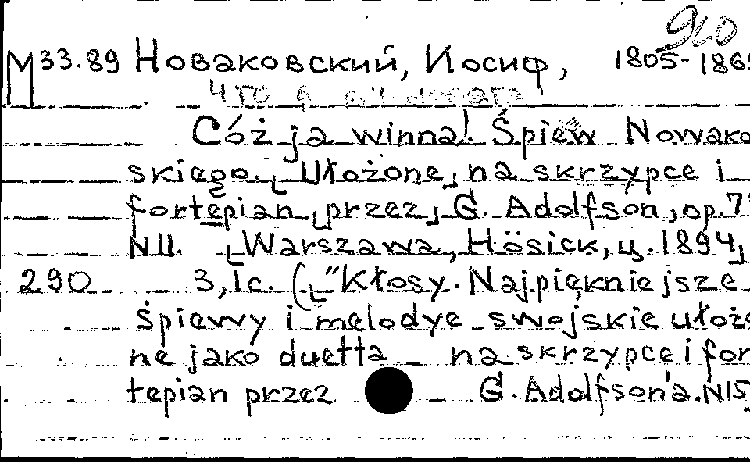 М33.89 Новаковский, Иосиф, 1805-1865
Cóż ja winna! Śpiew Nowako
skiego. [Ułożone] na skrzypce i
fortepian [przez] G. Adolfson, op.7
N11. [Warszawa, Hösick, ц. 1894]
290 3,1с. (["Kłosy. Najpiękniejsze
śpiewy i melodye swojskie ułożo
ne jako duetta na skrzypce i for
tepian przez G. Adolfson'a. N15